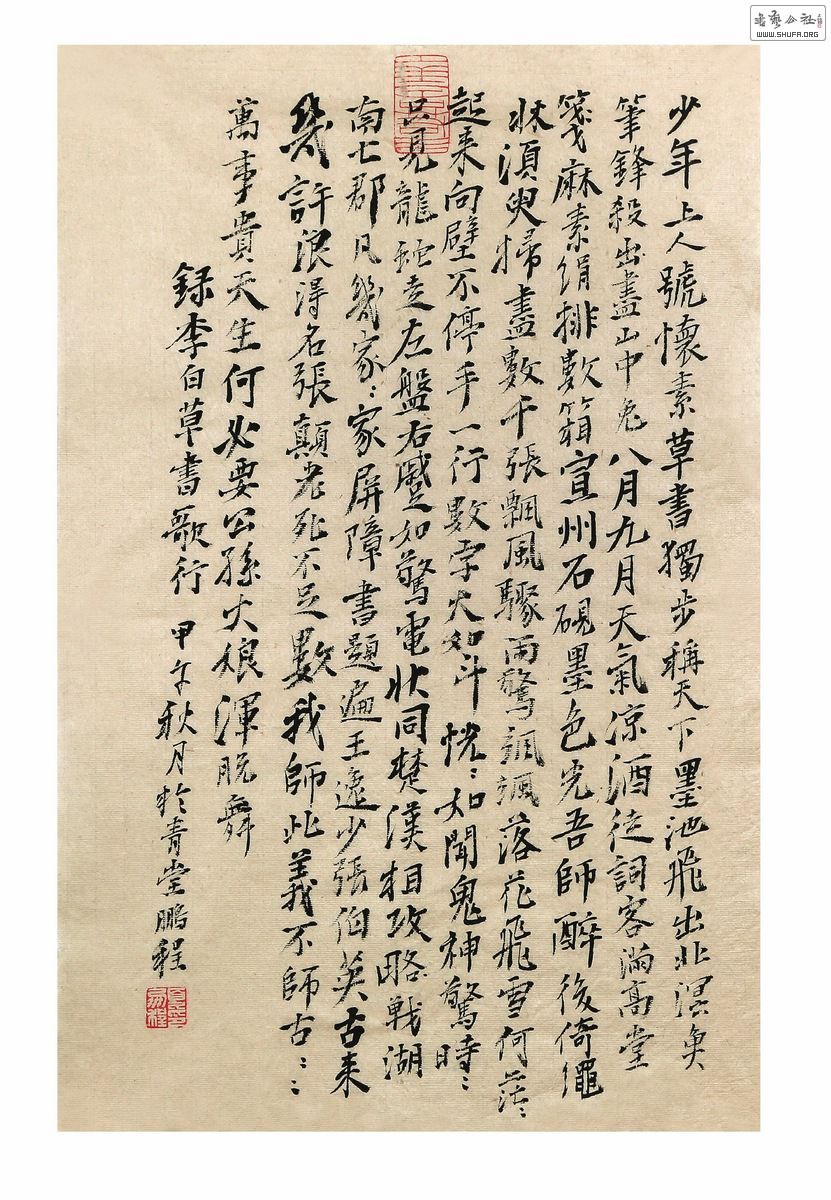 少年上人號懷素草書獨步稱天下墨池飛出北溟魚
筆鋒殺出盡山中兔八月九月天氣涼酒徒詞客滿高堂
箋麻素絹排數箱宣州石硯墨色光吾師醉後倚繩
牀須臾掃盡數千張飄風驟雨驚颯颯落花飛雪何茫茫
起来向壁不停手一行數字大如斗恍恍如聞鬼神驚時時
只見龍蛇走左盤右蹙如驚電狀同楚漢相攻戰湖
南七郡凡幾家家家屏障書題遍王逸少張伯英古来
幾許浪得名張顛老死不足數我師此義不師古古古
萬事貴天生何必要公孫大娘渾脱舞
録李白草書歌行 甲午秋月於青堂鵬程
書藝公社
WWW.SHUFA.ORG